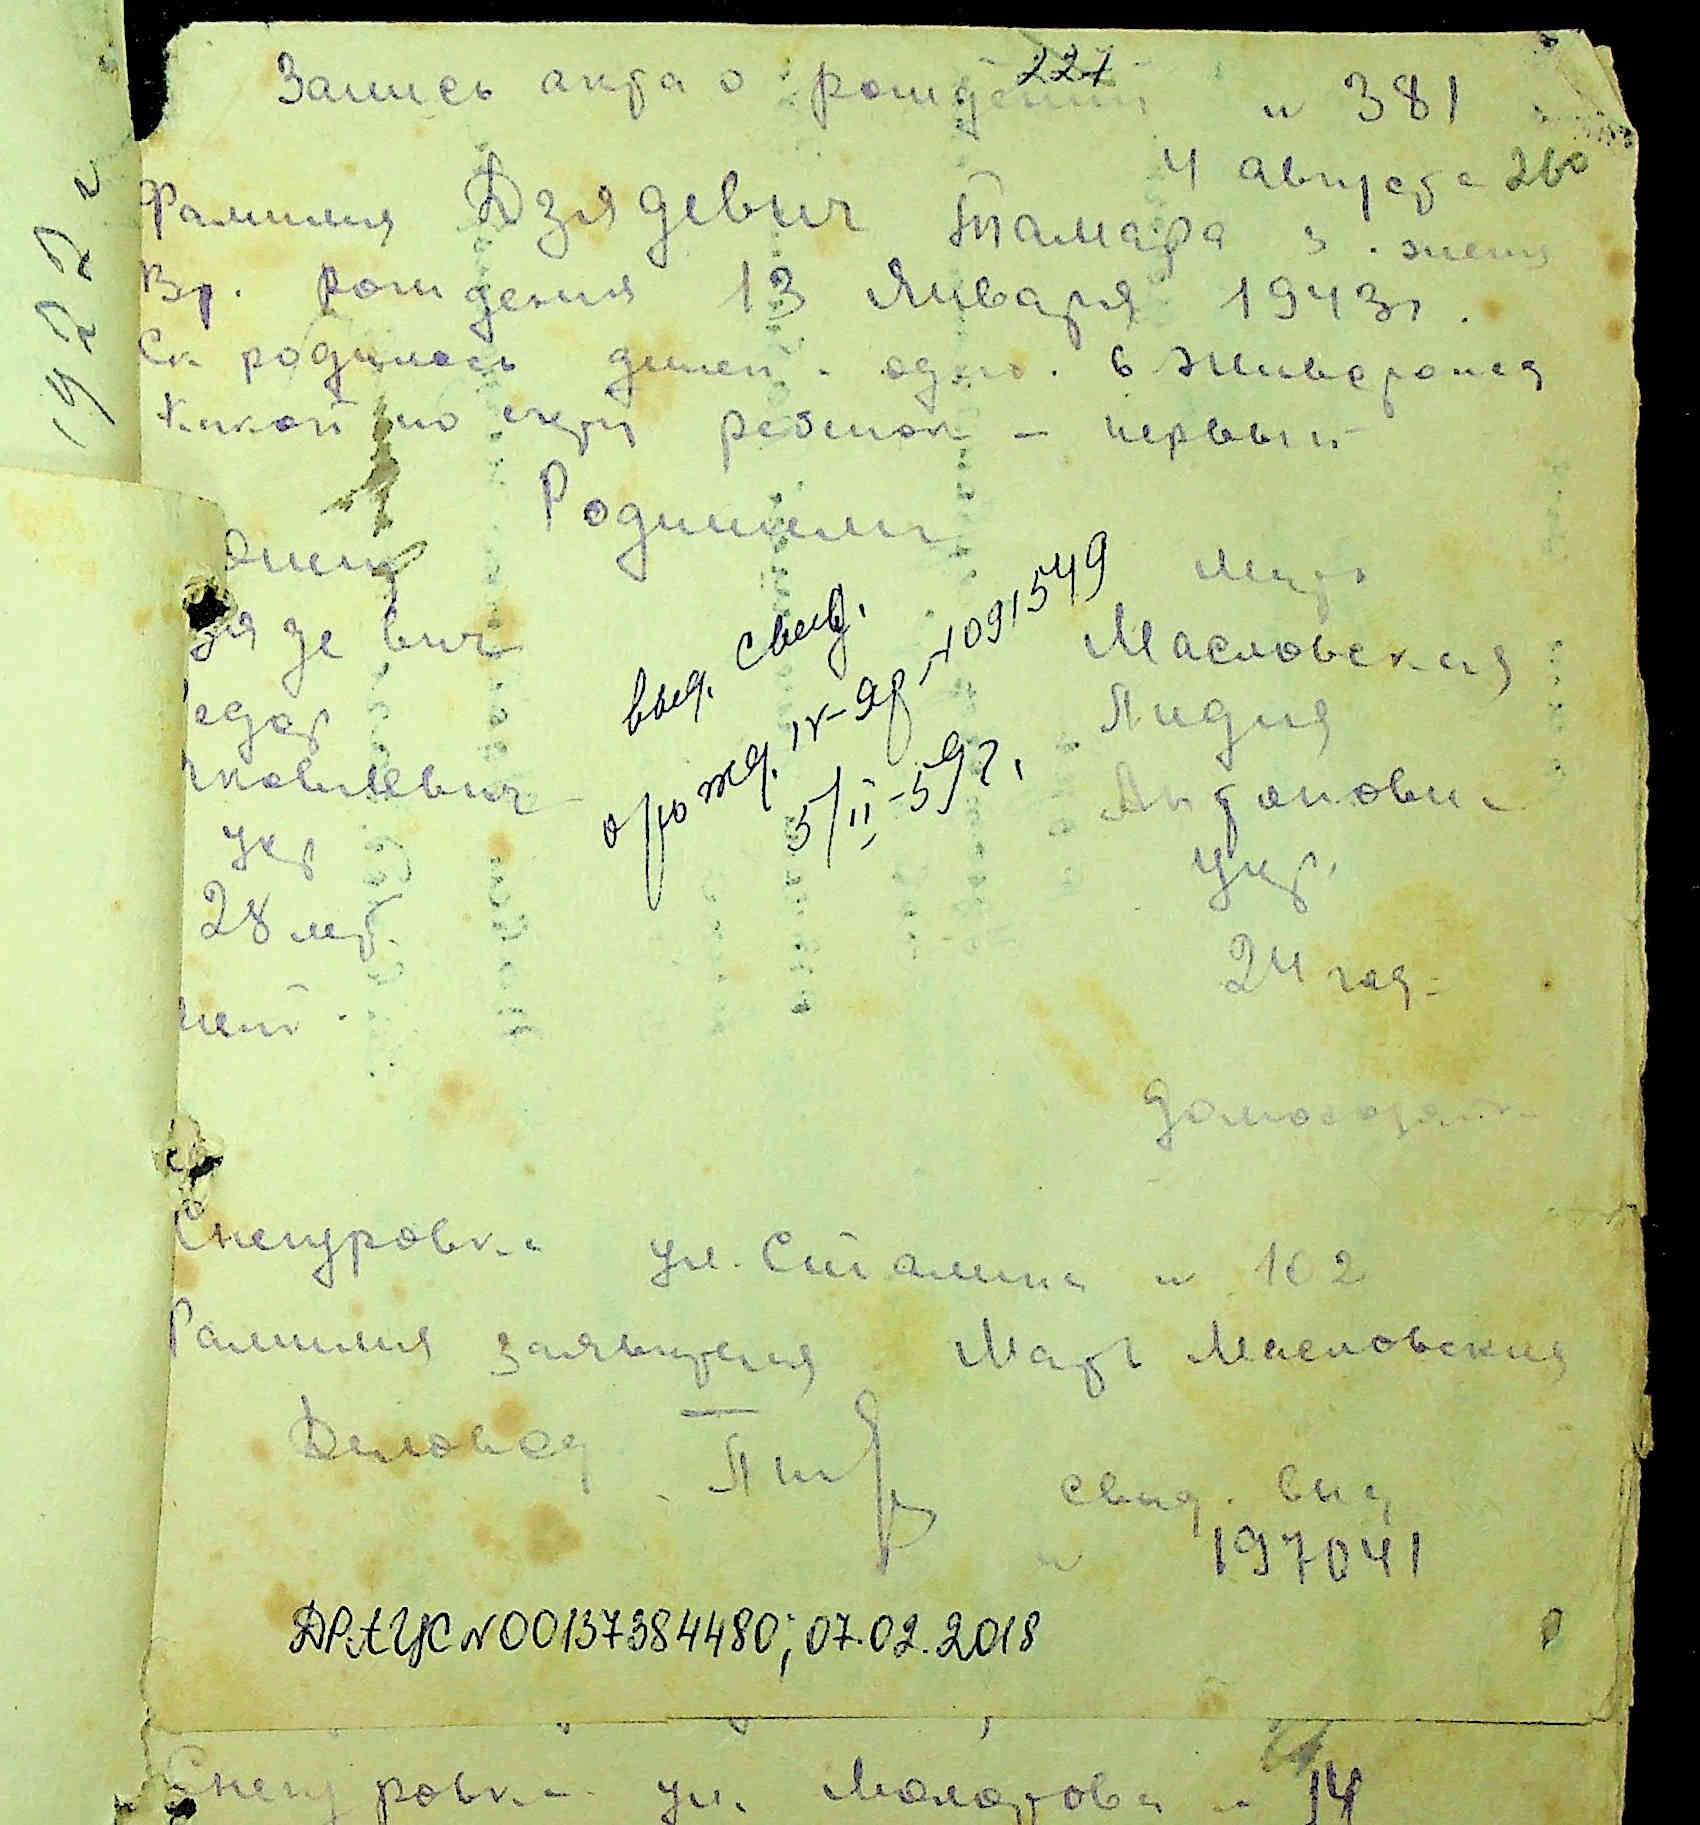 227
Запись акта о рождении н 381
4 августа
Фамилия Дзядевич Тамара з. женя
Вр. рождения 13 Января 1943 г.
Ск родилось детей - одно. в живерожд
Какой по счету ребенок - первый
Родители
Отец
Мать
зядевич
Масловская
едор
Лидия
Яковлевич
Антоновна
укр
укр.
28 лет.
24 год.
нет.
домохозяйк
выд. свид.
о рожд. IV-ЯР-1091549
5/II-59 г.
Снегуровка ул. Сталина н 102
Фамилия заявителя Мать Масловская
Деловод
свид. выд
н 197041
ДРАЦС N 00137384480; 07.02.2018
Снегуровка ул. Молотова н 14
1922